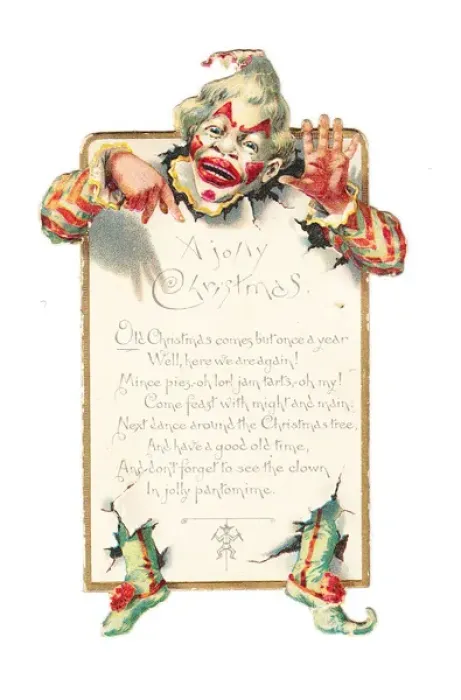 A jolly
Christmas.
Old Christmas comes but once a year
Well, here we are again!
Mince pies,-oh lor! jam tarts,-oh my!
Come feast with might and main;
Next dance around the Christmas tree,
And have a good old time,
And don't forget to see the clown
In jolly pantomime.